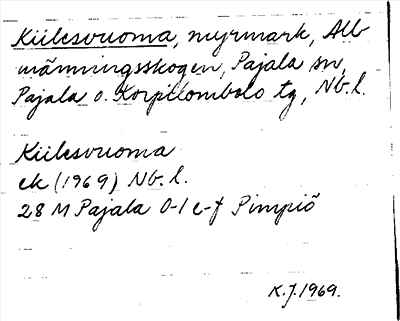 Kiilesvuoma, myrmark, All-
männingsskogen, Pajala sn,
Pajala o. Korpilombolo tg, Nb. l.
Kiilesvuoma
ek (1969) Nb. l.
28 M Pajala 0-1 e-f Pimpiö
K.J. 1969.